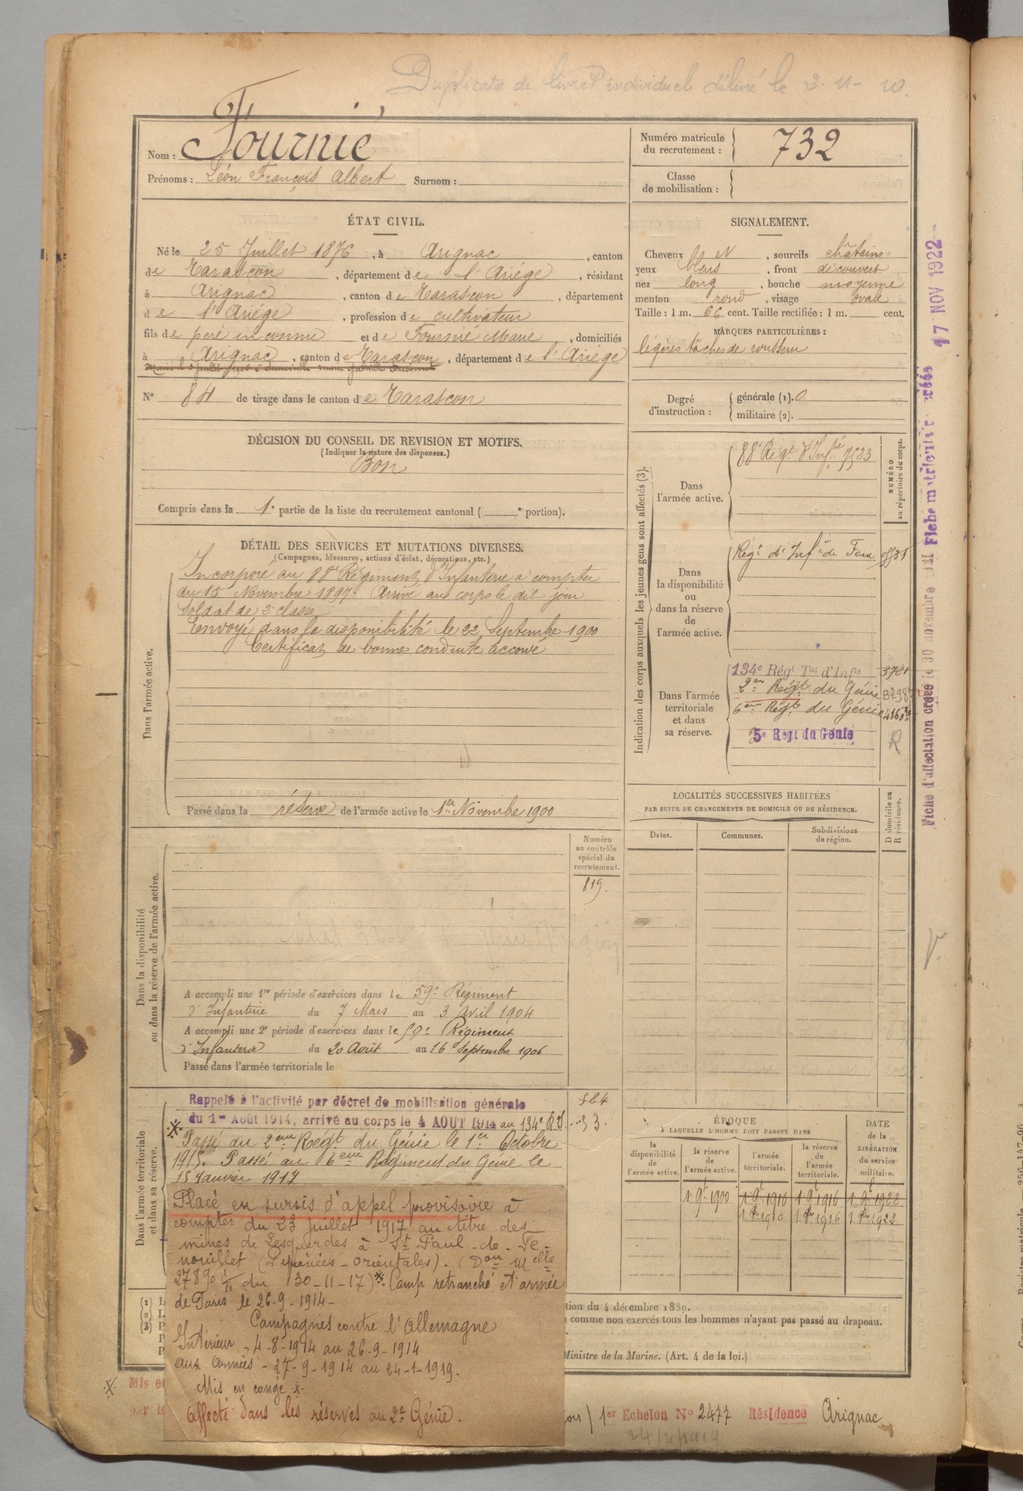 Duplicata de livret individuel délivré le 2-11-10.
Nom : Fournié
Prénoms : Léon François Albert Surnom :
Numéro matricule du recrutement : 732
Classe de mobilisation :
ÉTAT CIVIL.
Né le 25 Juillet 1876, à Arignac, canton
de Tarascon, département de l'Ariège, résidant
à Arignac, canton de Tarascon, département
de l'Ariège, profession de cultivateur
fils de père inconnu et de Fournié Marie, domiciliés
à Arignac, canton de Tarascon, département de l'Ariège
N° 84 de tirage dans le canton de Tarascon
SIGNALEMENT.
Cheveux N, sourcils châtains
yeux , front découvert
nez long, bouche moyenne
menton rond, visage ovale
Taille : 1 m. 66 cent. Taille rectifiée : 1 m. cent.
MARQUES PARTICULIÈRES :
légères tâches de rousseur
Degré d'instruction : générale (1). 0
militaire (2).
DÉCISION DU CONSEIL DE REVISION ET MOTIFS.
(Indiquer la nature des dispenses.)
Bon
Compris dans la 1e partie de la liste du recrutement cantonal ( e portion).
DÉTAIL DES SERVICES ET MUTATIONS DIVERSES.
(Campagnes, blessures, actions d'éclat, décorations, etc.)
Dans l'armée active.
Incorporé au 88e Régiment d'Infanterie à compter
du 15 Novembre 1897. Arrivé au corps le dit jour
soldat de 2e classe
Envoyé dans la disponibilité le 22 Septembre 1900
Certificat de bonne conduite accordé
Passé dans la réserve de l'armée active le 1er Novembre 1900
Indication des corps auxquels les jeunes gens sont affectés (3).
NUMÉRO au répertoire du corps.
Dans l'armée active.
88e Régt d'Infie 7523
Dans la disponibilité ou dans la réserve de l'armée active.
Régt d'Infie de Foix
Dans l'armée territoriale et dans sa réserve.
134e Régt Tal d'Infie
2e Régt du Génie
6e Régt du Génie
5e Régt du Génie
R
LOCALITÉS SUCCESSIVES HABITÉES
PAR SUITE DE CHANGEMENTS DE DOMICILE OU DE RÉSIDENCE.
Dates. Communes. Subdivisions de région. D domicile ou R résidence.
Dans la disponibilité ou dans la réserve de l'armée active.
Numéro au contrôle spécial du recrutement.
819.
A accompli une 1re période d'exercices dans le 59e Régiment
d'Infanterie du 7 Mars au 3 Avril 1904
A accompli une 2e période d'exercices dans le 59e Régiment
d'Infanterie du 20 Août au 16 septembre 1906
Passé dans l'armée territoriale le
Dans l'armée territoriale et dans sa réserve.
Rappelé à l'activité par décret de mobilisation générale
du 1er Août 1914, arrivé au corps le 4 AOUT 1914 au 134e R.I.
Passé au 2eme Régt du Génie le 1er Octobre
1915. Passé au 6eme Régiment du Génie le
15 Janvier 1917
Placé en sursis d'appel provisoire à
compter du 23 juillet 1917 au titre des
mines de Lesquerdes à St Paul-de-Fe-
nouillet (Pyrénées-Orientales). (Don Melle
2789 du 30-11-17) Camp retranché et armée
de Paris le 26-9-1914-
Campagnes contre l'Allemagne
Intérieur - 4-8-1914 au 26-9-1914
aux armées - 27-9-1914 au 24-1-1919.
Mis en congé x.
affecté dans les réserves au 2e Génie.
ÉPOQUE
À LAQUELLE L'HOMME DOIT PASSER DANS
DATE de la LIBÉRATION du service militaire.
la disponibilité de l'armée active. la réserve de l'armée active. l'armée territoriale. la réserve de l'armée territoriale.
1 9bre 1900 1 9bre 1910 1 9bre 1916 1 9bre 1922
1 8bre 1910 1 8bre 1916 1 8bre 1922
(1)
(2)
(3)
tion du 4 décembre 1889.
comme non exercés tous les hommes n'ayant pas passé au drapeau.
Ministre de la Marine. (Art. 4 de la loi.)
Mis en
1er Echelon N° 2477 Résidence Arignac
Fiche d'affectation créée le 30 novembre 1921 Fiche matricule créée 17 NOV 1922